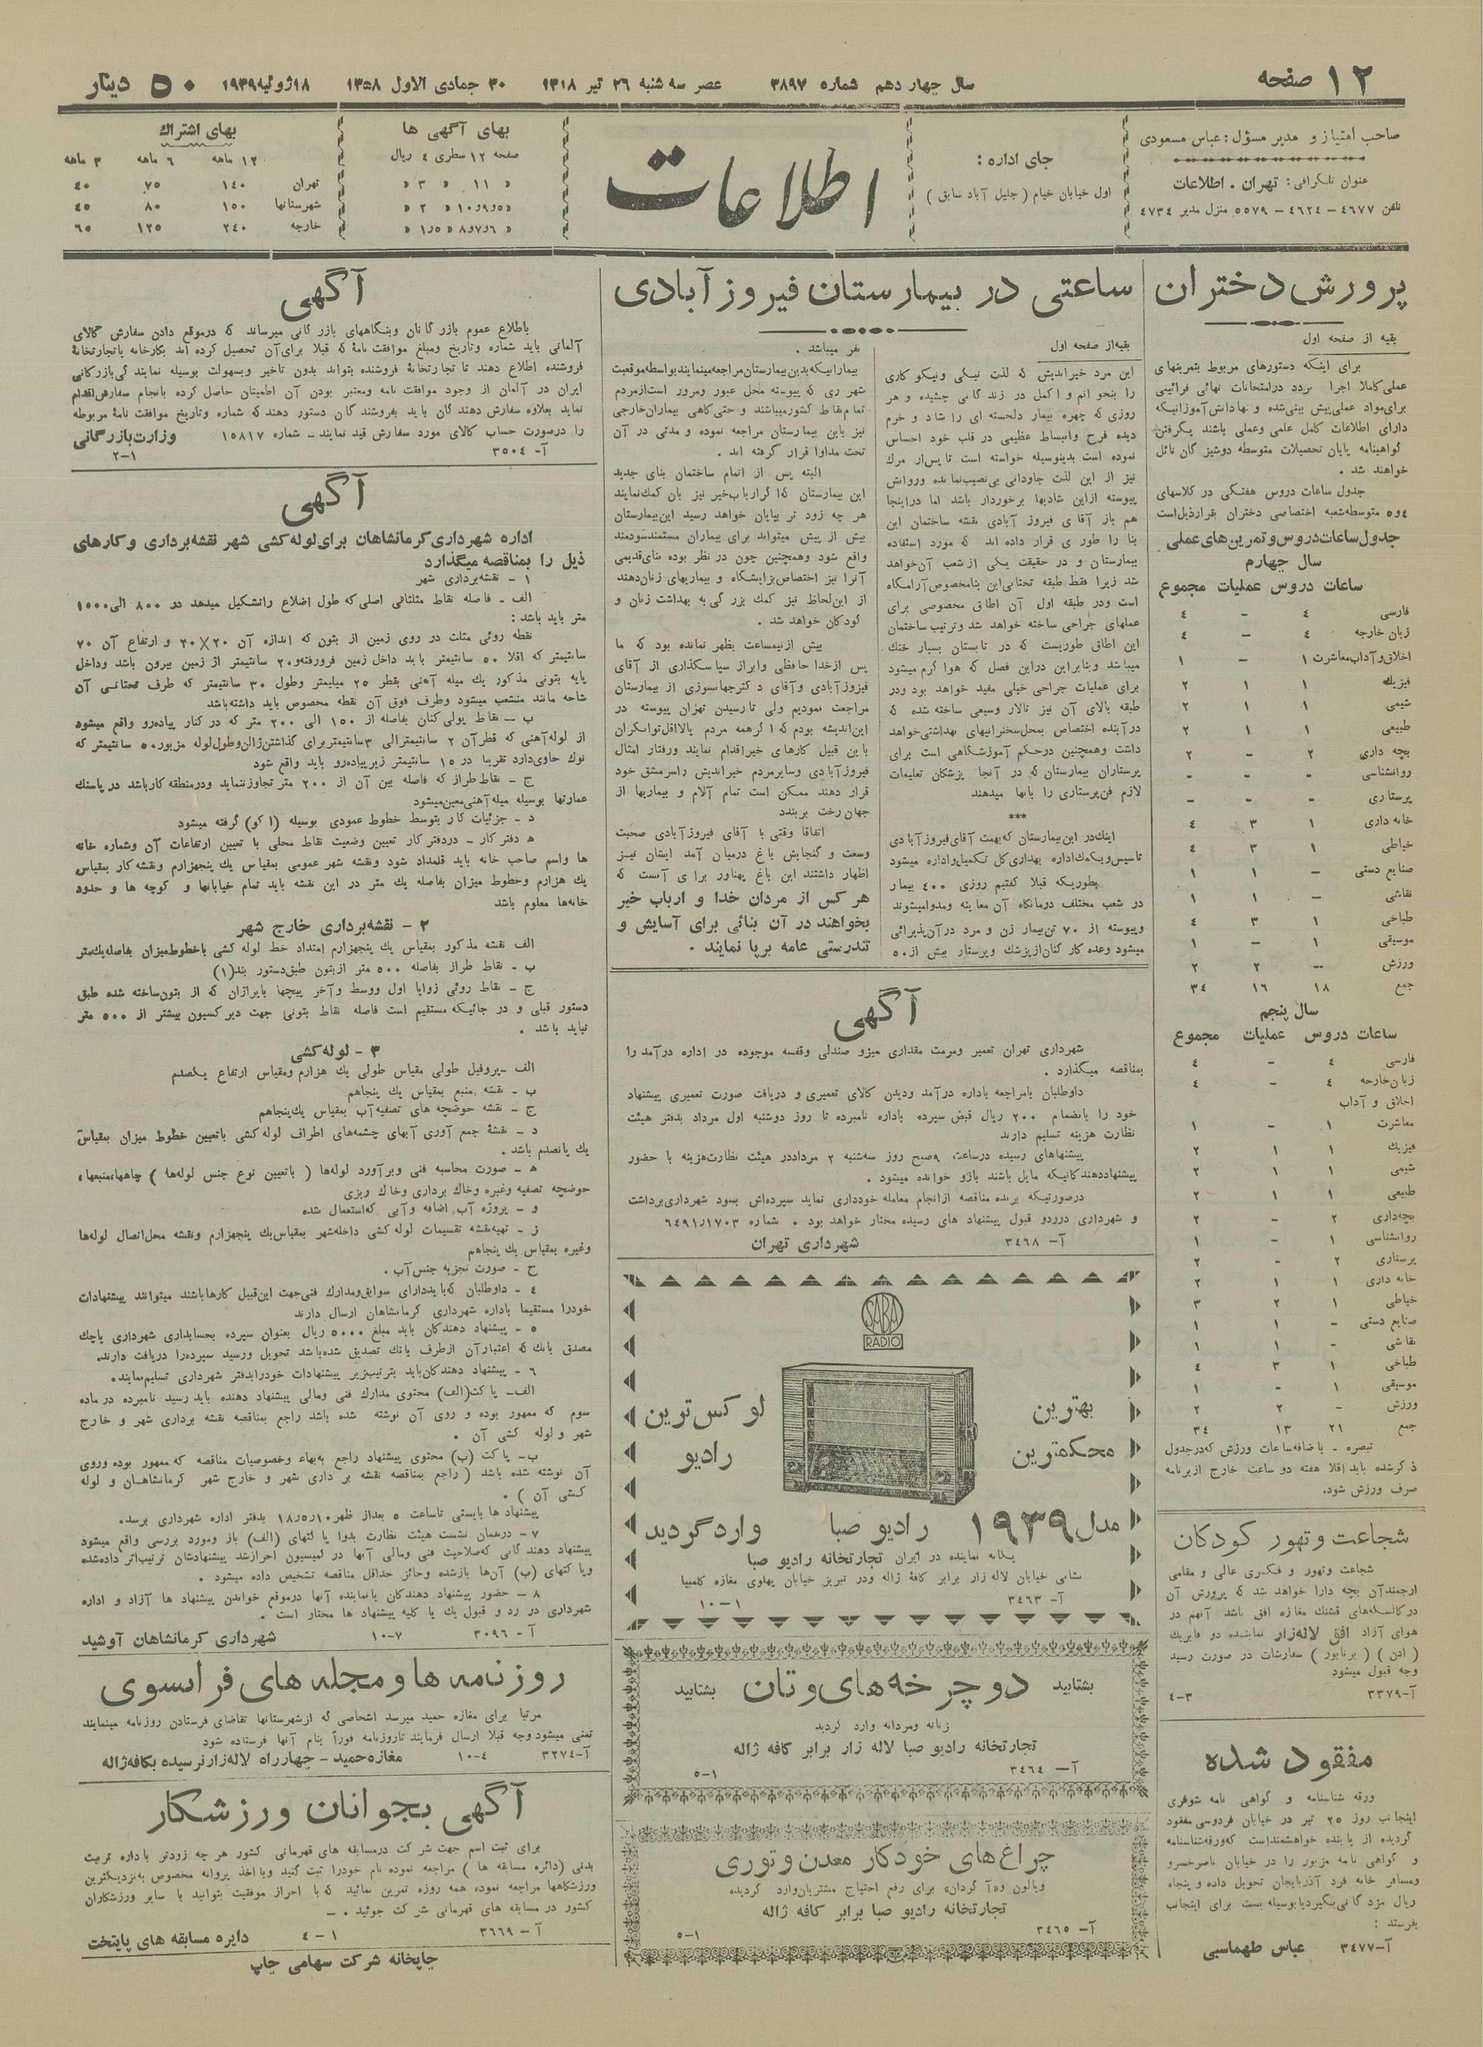 ۱۲ صفحه
سال چهاردهم شماره ۳۸۹۷
عصر سه شنبه ۲۶ تیر ۱۳۱۸
۳۰ جمادی الاول ۱۳۵۸
۱۸ ژوئیه ۱۹۳۹
۵۰ دینار
صاحب امتیاز و مدیر مسؤل : عباس مسعودی
عنوان تلگرافی : تهران . اطلاعات
تلفن ۴۶۷۷ - ۴۶۲۴ - ۵۵۷۹ منزل مدیر ۴۷۳۴
جای اداره :
اول خیابان خیام ( جلیل آباد سابق )
اطلاعات
بهای آگهی ها
صفحه ۱۲ سطری ۴ ریال
« ۱۱ « ۳ «
بهای اشتراک
۱۲ ماهه ۶ ماهه ۳ ماهه
تهران ۱۴۰ ۷۵ ۴۰
شهرستانها ۱۵۰ ۸۰ ۴۵
خارجه ۲۴۰ ۱۲۵ ۶۵
پرورش دختران
بقیه از صفحه اول
برای اینکه دستورهای مربوط بتمرینهای
دارای اطلاعات کامل علمی وعملی باشند بگرفتن
گواهینامه پایان تحصیلات متوسطه دوشیزگان نائل
خواهند شد .
جدول ساعات دروس هفتگی در کلاسهای
۴و۵ متوسطه شعبه اختصاصی دختران بقرار ذیل است
جدول ساعات دروس و تمرین های عملی
سال چهارم
ساعات دروس عملیات مجموع
فارسی ۴ - ۴
زبان خارجه ۴ - ۴
اخلاق و آداب معاشرت ۱ - ۱
فیزیک ۱ ۱ ۲
شیمی ۱ ۱ ۲
طبیعی ۱ ۱ ۲
بچه داری ۲ - ۲
روانشناسی - - -
پرستاری - - -
خانه داری ۱ ۳ ۴
خیاطی ۱ ۳ ۴
صنایع دستی - ۱ ۱
نقاشی - ۱ ۱
طباخی ۱ ۳ ۴
موسیقی ۱ - ۱
ورزش - ۲ ۲
جمع ۱۸ ۱۶ ۳۴
سال پنجم
ساعات دروس عملیات مجموع
فارسی ۴ - ۴
زبان خارجه ۴ - ۴
اخلاق و آداب
معاشرت ۱ - ۱
فیزیک ۱ ۱ ۲
شیمی ۱ ۱ ۲
طبیعی ۱ ۱ ۲
بچه داری ۲ - ۲
روانشناسی ۱ - ۱
پرستاری ۲ - ۲
خانه داری ۱ ۱ ۲
خیاطی ۱ ۲ ۳
صنایع دستی - ۱ ۱
نقاشی - ۱ ۱
طباخی ۱ ۳ ۴
موسیقی ۱ - ۱
ورزش - ۲ ۲
جمع ۲۱ ۱۳ ۳۴
تبصره - باضافه ساعات ورزش که در جدول
ذکر شده باید اقلا هفته دو ساعت خارج از برنامه
صرف ورزش شود.
شجاعت و تهور کودکان
شجاعت وتهور و فکری عالی و مقامی
ارجمند آن بچه دارا خواهد شد که پرورش آن
در کالسکه‌های قشنگ مغازه افق باشد آنهم در
هوای آزاد افق لاله زار نماینده دو فابریک
سفارشات در صورت رسید
وجه قبول میشود
آ-۳۳۷۹ ۳-۴
مفقود شده
ورقه شناسنامه و گواهی نامه شوفری
اینجانب روز ۲۵ تیر در خیابان فردوسی مفقود
گردیده از یابنده خواهشمند است که ورقه شناسنامه
و گواهی نامه مزبور را در خیابان ناصرخسرو
ومسافرخانه فرد آذربایجان تحویل داده و پنجاه
ریال مژدگانی بگیرد یا بوسیله پست برای اینجانب
بفرستد :
آ-۳۴۷۷ عباس طهماسبی
ساعتی در بیمارستان فیروزآبادی
بقیه از صفحه اول
این مرد خیراندیش که لذت نیکی ونیکوکاری
را بنحو اتم و اکمل در زندگانی چشیده و هر
روزی که چهره بیمار دلخسته ای را شاد و خرم
دیده فرح وانبساط عظیمی در قلب خود احساس
نموده است بدینوسیله خواسته است تا پس از مرگ
نیز از این لذت جاودانی بی‌نصیب نمانده وروانش
پیوسته ازاین شادیها برخوردار باشد اما دراینجا
هم باز آقای فیروز آبادی نقشه ساختمان این
بنا را طوری قرار داده اند که مورد استفاده
بیمارستان و در حقیقت یکی از شعب آن خواهد
شد زیرا فقط طبقه تحتانی این بنا مخصوص آرامگاه
است ودر طبقه اول آن اطاق مخصوصی برای
عملهای جراحی ساخته خواهد شد وترتیب ساختمان
این اطاق طوریست که در تابستان بسیار خنک
میباشد وبنابراین دراین فصل که هوا گرم میشود
برای عملیات جراحی خیلی مفید خواهد بود ودر
طبقه بالای آن نیز تالار وسیعی ساخته شده که
در آینده اختصاص بمحل سخنرانیهای بهداشتی خواهد
داشت وهمچنین درحکم آموزشگاهی است برای
پرستاران بیمارستان که در آنجا پزشکان تعلیمات
لازم فن پرستاری را بآنها میدهند
***
اینک در این بیمارستان که بهمت آقای فیروزآبادی
تاسیس و بکمک اداره بهداری کل تکمیل و اداره میشود
بطوریکه قبلا گفتیم روزی ۴۰۰ بیمار
در شعب مختلف درمانگاه آن معاینه ومداوا میشوند
وپیوسته از ۷۰ تن بیمار زن و مرد در آن پذیرائی
میشود وعده کارکنان از پزشک وپرستار بیش از ۵۰
نفر میباشد .
بیمارانیکه بدین بیمارستان مراجعه مینمایند بواسطه موقعیت
شهر ری که پیوسته محل عبور ومرور است از مردم
تمام نقاط کشور میباشند و حتی گاهی بیماران خارجی
نیز باین بیمارستان مراجعه نموده و مدتی در آن
تحت مداوا قرار گرفته اند .
البته پس از اتمام ساختمان بنای جدید
این بیمارستان که اگر ارباب خیر نیز بآن کمک نمایند
هر چه زود تر بپایان خواهد رسید این بیمارستان
بیش از پیش میتواند برای بیماران مستمند سودمند
واقع شود وهمچنین چون در نظر بوده بنای قدیمی
آنرا نیز اختصاص بزایشگاه و بیماریهای زنان دهند
از این لحاظ نیز کمک بزرگی به بهداشت زنان و
کودکان خواهد شد .
بیش از نیمساعت بظهر نمانده بود که ما
پس از خدا حافظی وابراز سپاسگذاری از آقای
فیروزآبادی وآقای دکتر جهانسوزی از بیمارستان
مراجعت نمودیم ولی تا رسیدن تهران پیوسته در
این اندیشه بودم که اگر همه مردم یا لااقل توانگران
باین قبیل کارهای خیر اقدام نمایند ورفتار امثال
فیروزآبادی وسایر مردم خیراندیش را سرمشق خود
قرار دهند ممکن است تمام آلام و بیماریها از
جهان رخت بربندد
اتفاقا وقتی با آقای فیروزآبادی صحبت
وسعت و گنجایش باغ درمیان آمد ایشان نیز
اظهار داشتند این باغ پهناور برای آنست که
هرکس از مردان خدا و ارباب خیر
بخواهند در آن بنائی برای آسایش و
تندرستی عامه برپا نمایند .
آگهی
شهرداری تهران تعمیر ومرمت مقداری میزو صندلی وقفسه موجوده در اداره درآمد را
بمناقصه میگذارد .
داوطلبان بامراجعه باداره درآمد ودیدن کالای تعمیری و دریافت صورت تعمیری پیشنهاد
خود را بانضمام ۲۰۰ ریال قبض سپرده باداره نامبرده تا روز دوشنبه اول مرداد بدفتر هیئت
نظارت هزینه تسلیم دارند
پیشنهادهای رسیده درساعت ۹ صبح روز سه‌شنبه ۲ مرداد در هیئت نظارت هزینه با حضور
پیشنهاددهندگانیکه مایل باشند بازو خوانده میشود .
درصورتیکه برنده مناقصه از انجام معامله خودداری نماید سپرده‌اش بسود شهرداری برداشت
و شهرداری دررد و قبول پیشنهاد های رسیده مختار خواهد بود . شماره ۶۴۹۱/۱۷۰۳
آ- ۳۴۶۸ شهرداری تهران
SABA
RADIO
بهترین
محکمترین
لوکس‌ترین
رادیو
مدل ۱۹۳۹ رادیو صبا وارد گردید
یگانه نماینده در ایران تجارتخانه رادیو صبا
نشانی خیابان لاله زار برابر کافه ژاله ودر تبریز خیابان پهلوی مغازه کلمبیا
آ- ۳۴۶۳ ۱-۱۰
بشتابید دوچرخه‌های وتان بشتابید
زنانه ومردانه وارد گردید
تجارتخانه رادیو صبا لاله زار برابر کافه ژاله
آ- ۳۴۶۴ ۱-۵
چراغ‌های خودکار معدن و توری
برای رفع احتیاج مشتریان وارد گردیده
تجارتخانه رادیو صبا برابر کافه ژاله
آ- ۳۴۶۵ ۱-۵
آگهی
باطلاع عموم بازرگانان وبنگاههای بازرگانی میرساند که درموقع دادن سفارش کالای
آلمانی باید شماره وتاریخ ومبلغ موافقت نامهٔ که قبلا برای آن تحصیل کرده اند بکارخانه یا تجارتخانهٔ
فروشنده اطلاع دهند تا تجارتخانهٔ فروشنده بتواند بدون تاخیر وبسهولت بوسیله نمایندگی بازرگانی
ایران در آلمان از وجود موافقت نامه ومعتبر بودن آن اطمینان حاصل کرده بانجام سفارش اقدام
نماید بعلاوه سفارش دهندگان باید بفروشندگان دستور دهند که شماره وتاریخ موافقت نامهٔ مربوطه
را درصورت حساب کالای مورد سفارش قید نمایند - شماره ۱۵۸۱۷ وزارت بازرگانی
آ- ۳۵۰۴ ۱-۲
آگهی
اداره شهرداری کرمانشاهان برای لوله کشی شهر نقشه‌برداری و کارهای
ذیل را بمناقصه میگذارد
۱ - نقشه‌برداری شهر
الف - فاصله نقاط مثلثاتی اصلی که طول اضلاع را تشکیل میدهد در ۸۰۰ الی ۱۰۰۰
متر باید باشد :
نقطه روئی مثلث در روی زمین از بتون که اندازه آن ۲۰×۳۰ و ارتفاع آن ۷۰
سانتیمتر که اقلا ۵۰ سانتیمتر باید داخل زمین فرورفته و ۲۰ سانتیمتر از زمین بیرون باشد وداخل
پایه بتونی مذکور یک میله آهنی بقطر ۲۵ میلیمتر وطول ۳۰ سانتیمتر که طرف تحتانی آن
شاخه مانند منشعب میشود وطرف فوق آن نقطه مخصوص باید داشته باشد
ب - نقاط پولی‌گنان بفاصله از ۱۵۰ الی ۲۰۰ متر که در کنار پیاده‌رو واقع میشود
از لوله آهنی که قطر آن ۲ سانتیمتر الی ۳ سانتیمتر برای گذاشتن ژالن وطول لوله مزبور ۵۰ سانتیمتر که
نوک حاوی دارد تقریبا در ۱۵ سانتیمتر زیر پیاده‌رو باید واقع شود
ج - نقاط طراز که فاصله بین آن از ۲۰۰ متر تجاوز ننماید ودرمنطقه کار باشد در پاسنگ
عمارتها بوسیله میله آهنی معین میشود
د - جزئیات کار بتوسط خطوط عمودی بوسیله (اکو) گرفته میشود
ه دفتر کار - دردفتر کار تعیین وضعیت نقاط محلی با تعیین ارتفاعات آن وشماره خانه
ها واسم صاحب خانه باید قلمداد شود ونقشه شهر عمومی بمقیاس یک پنجهزارم ونقشه کار بمقیاس
یک هزارم وخطوط میزان بفاصله یک متر در این نقشه باید تمام خیابانها و کوچه ها و حدود
خانه‌ها معلوم باشد
۲ - نقشه‌برداری خارج شهر
الف نقشه مذکور بمقیاس یک پنجهزارم امتداد خط لوله کشی باخطوط میزان بفاصله یک متر
ب - نقاط طراز بفاصله ۵۰۰ متر از بتون طبق دستور بند(۱)
ج - نقاط روئی زوایا اول ووسط وآخر پیچها که از بتون ساخته شده طبق
دستور قبلی و در جائیکه مستقیم است فاصله نقاط بتونی جهت دیرکسیون بیشتر از ۵۰۰ متر
نباید باشد .
۳ - لوله کشی
الف - پروفیل طولی مقیاس طولی یک هزارم ومقیاس ارتفاع یکصدم
ب - نقشه منبع بمقیاس یک پنجاهم
ج - نقشه حوضچه های تصفیه آب بمقیاس یک پنجاهم
د - نقشهٔ جمع آوری آبهای چشمه‌های اطراف لوله کشی باتعیین خطوط میزان بمقیاس
یک پانصدم باشد .
ه - صورت محاسبه فنی وبرآورد لوله‌ها ( باتعیین نوع جنس لوله‌ها ) چاهها، منبعها،
حوضچه تصفیه وغیره وخاک برداری وخاک ریزی
و - پروژه آب اضافه وآبی که استعمال شده
ز - تهیه نقشه تقسیمات لوله کشی داخله شهر بمقیاس یک پنجهزارم ونقشه محل اتصال لوله‌ها
وغیره بمقیاس یک پنجاهم
ح - صورت تجزیه جنس آب .
۴ - داوطلبان که باید دارای سوابق ومدارک فنی جهت این قبیل کارها باشند میتوانند پیشنهادات
خود را مستقیما باداره شهرداری کرمانشاهان ارسال دارند
۵ - پیشنهاد دهندگان باید مبلغ ۵۰۰۰ ریال بعنوان سپرده بحسابداری شهرداری یاچک
مصدق بانک که اعتبار آن از طرف بانک تصدیق شده باشد تحویل ورسید سپرده را دریافت دارند.
۶ - پیشنهاد دهندگان باید بترتیب زیر پیشنهادات خود را بدفتر شهرداری تسلیم نمایند.
الف - پاکت (الف) محتوی مدارک فنی ومالی پیشنهاد دهنده باید رسید نامبرده در ماده
سوم که ممهور بوده و روی آن نوشته شده باشد راجع بمناقصه نقشه برداری شهر و خارج
شهر و لوله کشی آن .
ب - پاکت (ب) محتوی پیشنهاد راجع به بهاء وخصوصیات مناقصه که ممهور بوده وروی
آن نوشته شده باشد ( راجع بمناقصه نقشه برداری شهر و خارج شهر کرمانشاهان و لوله
کشی آن ) .
پیشنهاد ها بایستی تاساعت ۵ بعد از ظهر ۱۸/۵/۱۰ بدفتر اداره شهرداری برسد.
۷ - درهمان نشست هیئت نظارت بدوا پاکتهای (الف) باز ومورد بررسی واقع میشود
پیشنهاد دهندگانی که صلاحیت فنی ومالی آنها در کمیسیون احراز شد پیشنهادشان ترتیب اثر داده شده
وپاکتهای (ب) آن‌ها باز شده وحائز حداقل مناقصه تشخیص داده میشود .
۸ - حضور پیشنهاد دهندگان یا نماینده آنها درموقع خواندن پیشنهاد ها آزاد و اداره
شهرداری در رد و قبول یک یا کلیه پیشنهاد ها مختار است .
آ - ۳۰۹۶ ۷-۱۰ شهرداری کرمانشاهان آوشید
روزنامه ها و مجله های فرانسوی
مرتبا برای مغازه حمید میرسد اشخاصی که از شهرستانها تقاضای فرستادن روزنامه مینمایند
تمنی میشود وجه قبلا ارسال فرمایند تا روزنامه فوراً بنام آنها فرستاده شود
آ-۳۲۷۴ ۴-۱۰ مغازه حمید - چهارراه لاله‌زار نرسیده بکافه ژاله
آگهی بجوانان ورزشکار
برای ثبت اسم جهت شرکت درمسابقه های قهرمانی کشور هر چه زودتر باداره تربیت
بدنی (دائره مسابقه ها ) مراجعه نموده نام خودرا ثبت کنید وبا اخذ پروانه مخصوص به نزدیکترین
ورزشگاهها مراجعه نموده همه روزه تمرین نمائید که با احراز موفقیت بتوانید با سایر ورزشکاران
کشور در مسابقه های قهرمانی شرکت جوئید . -
آ - ۳۶۶۹ ۱ - ۴ دایره مسابقه های پایتخت
چاپخانه شرکت سهامی چاپ